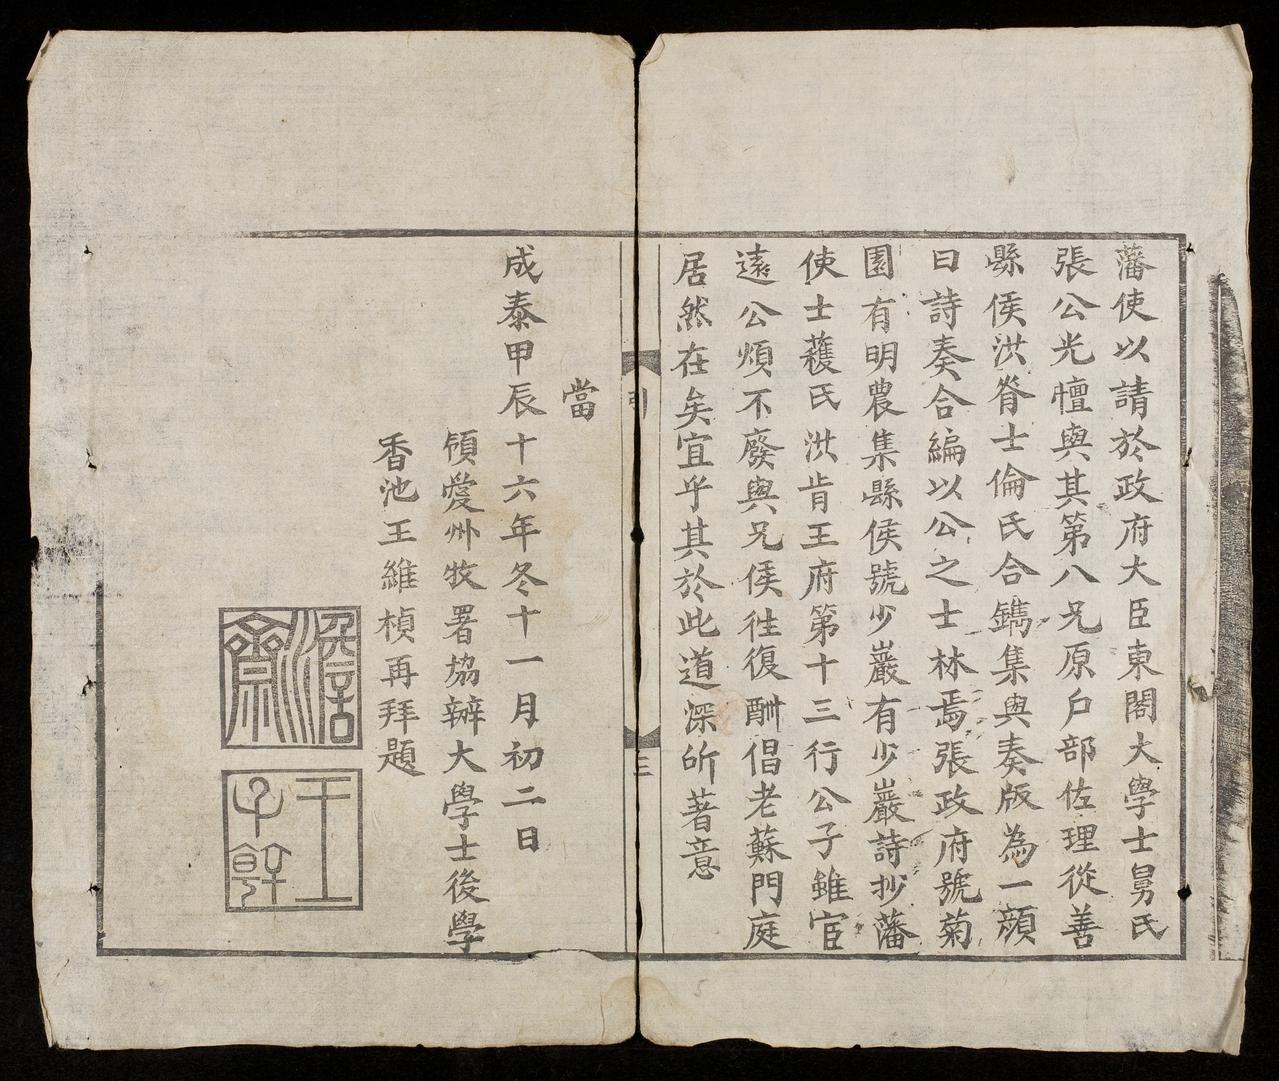 藩使以請於政府大臣東閣大學士舅氏
張公光憻與其第八兄原户部佐理從善
縣侯洪脊士倫氏合鐫集與奏版為一顔
曰詩奏合編以公之士林焉張政府號菊
園有明農集縣侯號少巖有少巖詩抄藩
使士蘉氏洪肯王府第十三行公子雖宦
遠公煩不廢與兄侯徃復酬倡老蘇門庭
居然在矣宜乎其於此道深所著意
引
三
當
成泰甲辰十六年冬十一月初二日
領愛州牧署協辦大學士後學
香池王維楨再拜題
澹齋
王子幹